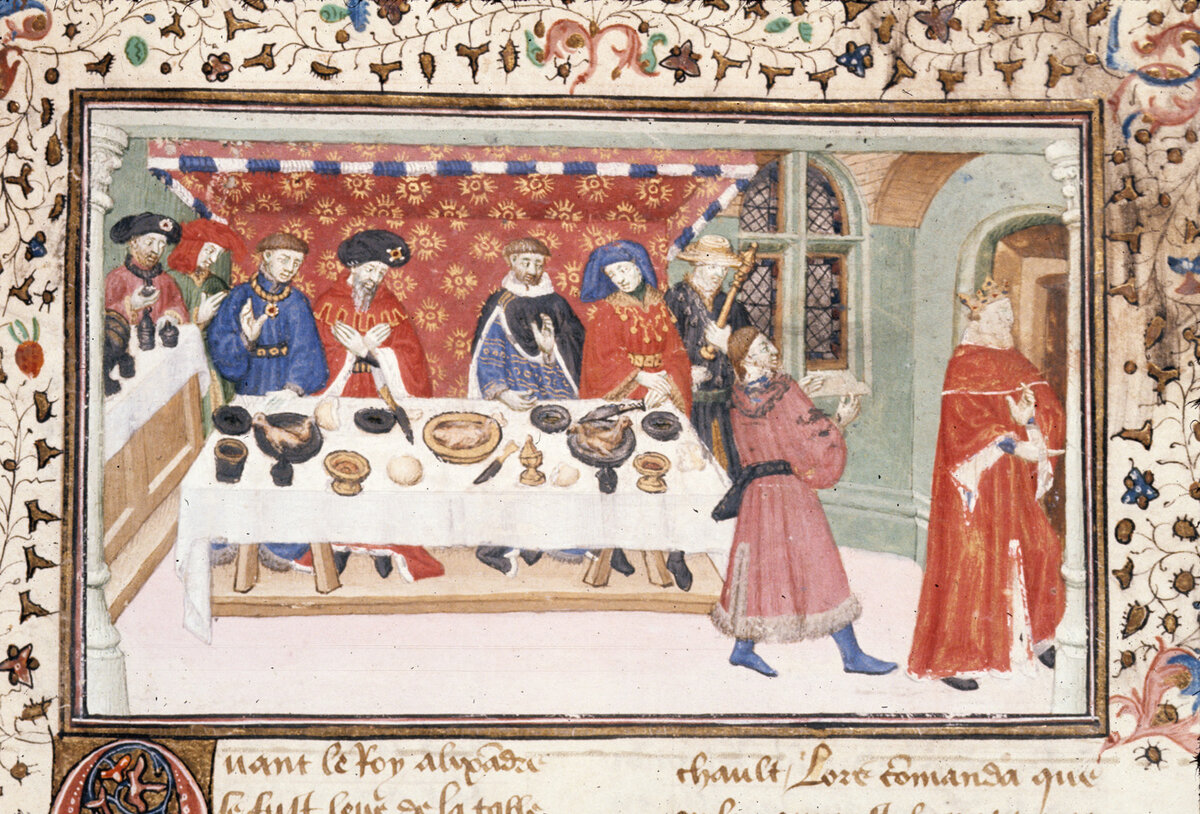 Quant le Roy alixādre
se fust leue de la table
chault / Lors cōmanda que